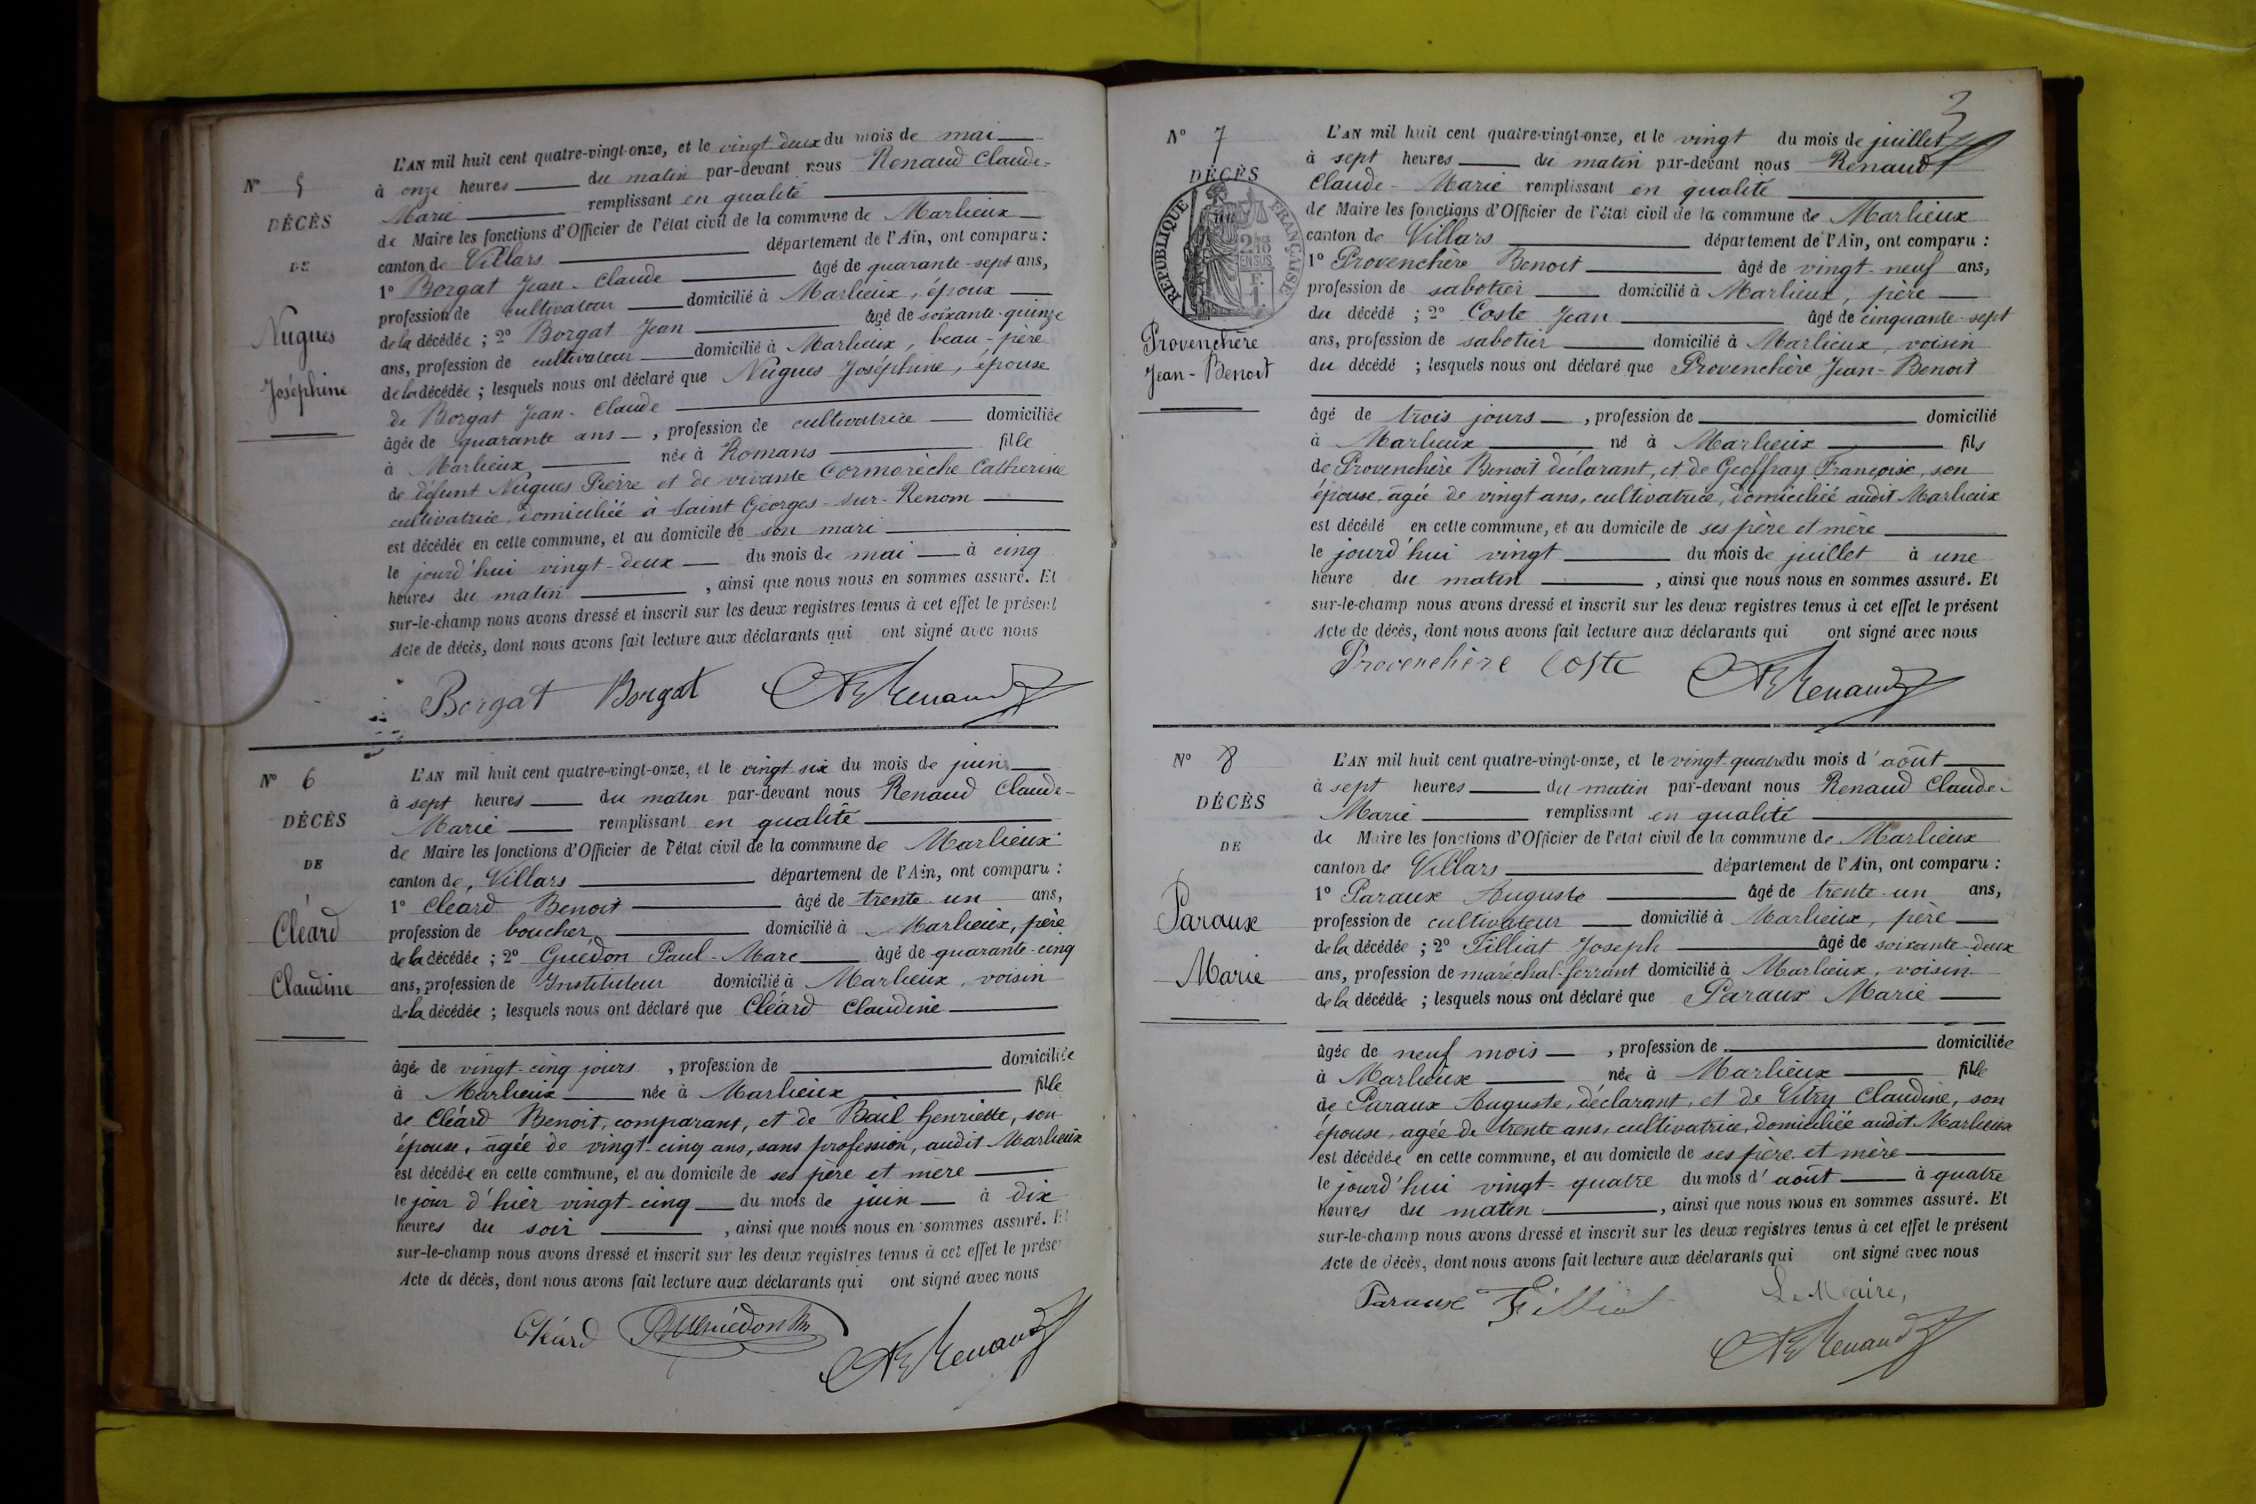 N° 5
DÉCÈS
DE
Nugues
Joséphine
L'AN mil huit cent quatre-vingt-onze, et le vingt-deux du mois de mai
à onze heures du matin par-devant nous Renaud Claude-
Marie remplissant en qualité
de Maire les fonctions d'Officier de l'état civil de la commune de Marlieux
canton de Villars département de l'Ain, ont comparu :
1° Borgat Jean-Claude âgé de quarante-sept ans,
profession de cultivateur domicilié à Marlieux, époux
de la décédée ; 2° Borgat Jean âgé de soixante-quinze
ans, profession de cultivateur domicilié à Marlieux, beau-père
de la décédée ; lesquels nous ont déclaré que Nugues Joséphine, épouse
de Borgat Jean-Claude
âgée de quarante ans, profession de cultivatrice domiciliée
à Marlieux née à Romans fille
de défunt Nugues Pierre et de vivante Cormorèche Catherine
cultivatrice, domiciliée à Saint Georges-sur-Renom
est décédée en cette commune, et au domicile de son mari
le jourd'hui vingt-deux du mois de mai à cinq
heures du matin, ainsi que nous nous en sommes assuré. Et
sur-le-champ nous avons dressé et inscrit sur les deux registres tenus à cet effet le présent
Acte de décès, dont nous avons fait lecture aux déclarants qui ont signé avec nous
Borgat Borgat Renaud
N° 6
DÉCÈS
DE
Cléard
Claudine
L'AN mil huit cent quatre-vingt-onze, et le vingt-six du mois de juin
à sept heures du matin par-devant nous Renaud Claude-
Marie remplissant en qualité
de Maire les fonctions d'Officier de l'état civil de la commune de Marlieux
canton de Villars département de l'Ain, ont comparu :
1° Cléard Benoit âgé de trente-un ans,
profession de boucher domicilié à Marlieux, père
de la décédée ; 2° Guédon Paul-Marc âgé de quarante-cinq
ans, profession de Instituteur domicilié à Marlieux, voisin
de la décédée ; lesquels nous ont déclaré que Cléard Claudine
âgée de vingt-cinq jours, profession de domiciliée
à Marlieux née à Marlieux fille
de Cléard Benoit, comparant, et de Bail henriette, son
épouse, âgée de vingt-cinq ans, sans profession, audit Marlieux
est décédée en cette commune, et au domicile de ses père et mère
le jour d'hier vingt-cinq du mois de juin à dix
heures du soir, ainsi que nous nous en sommes assuré. Et
sur-le-champ nous avons dressé et inscrit sur les deux registres tenus à cet effet le prése
Acte de décès, dont nous avons fait lecture aux déclarants qui ont signé avec nous
Cléard Guédon Renaud
3
N° 7
DÉCÈS
RÉPUBLIQUE FRANÇAISE
2/10 EN SUS
F. 1
Provenchère
Jean-Benoit
L'AN mil huit cent quatre-vingt-onze, et le vingt du mois de juillet
à sept heures du matin par-devant nous Renaud
Claude-Marie remplissant en qualité
de Maire les fonctions d'Officier de l'état civil de la commune de Marlieux
canton de Villars département de l'Ain, ont comparu :
1° Provenchère Benoit âgé de vingt-neuf ans,
profession de sabotier domicilié à Marlieux, père
du décédé ; 2° Coste Jean âgé de cinquante-sept
ans, profession de sabotier domicilié à Marlieux, voisin
du décédé ; lesquels nous ont déclaré que Provenchère Jean-Benoit
âgé de trois jours, profession de domicilié
à Marlieux né à Marlieux fils
de Provenchère Benoit déclarant, et de Geoffray Françoise, son
épouse, âgée de vingt ans, cultivatrice, domiciliée audit Marlieux
est décédé en cette commune, et au domicile de ses père et mère
le jourd'hui vingt du mois de juillet à une
heure du matin, ainsi que nous nous en sommes assuré. Et
sur-le-champ nous avons dressé et inscrit sur les deux registres tenus à cet effet le présent
Acte de décès, dont nous avons fait lecture aux déclarants qui ont signé avec nous
Provenchère Coste Renaud
N° 8
DÉCÈS
DE
Paraux
Marie
L'AN mil huit cent quatre-vingt-onze, et le vingt-quatre du mois d'août
à sept heures du matin par-devant nous Renaud Claude-
Marie remplissant en qualité
de Maire les fonctions d'Officier de l'état civil de la commune de Marlieux
canton de Villars département de l'Ain, ont comparu :
1° Paraux Auguste âgé de trente-un ans,
profession de cultivateur domicilié à Marlieux, père
de la décédée ; 2° Tilliat Joseph âgé de soixante-deux
ans, profession de maréchal-ferrant domicilié à Marlieux, voisin
de la décédée ; lesquels nous ont déclaré que Paraux Marie
âgée de neuf mois, profession de domiciliée
à Marlieux née à Marlieux fille
de Paraux Auguste, déclarant, et de Vitry Claudine, son
épouse, agée de trente ans, cultivatrice, domiciliée audit Marlieux
est décédée en cette commune, et au domicile de ses père et mère
le jourd'hui vingt-quatre du mois d'août à quatre
heures du matin, ainsi que nous nous en sommes assuré. Et
sur-le-champ nous avons dressé et inscrit sur les deux registres tenus à cet effet le présent
Acte de décès, dont nous avons fait lecture aux déclarants qui ont signé avec nous
Paraux Tilliat Le Maire,
Renaud